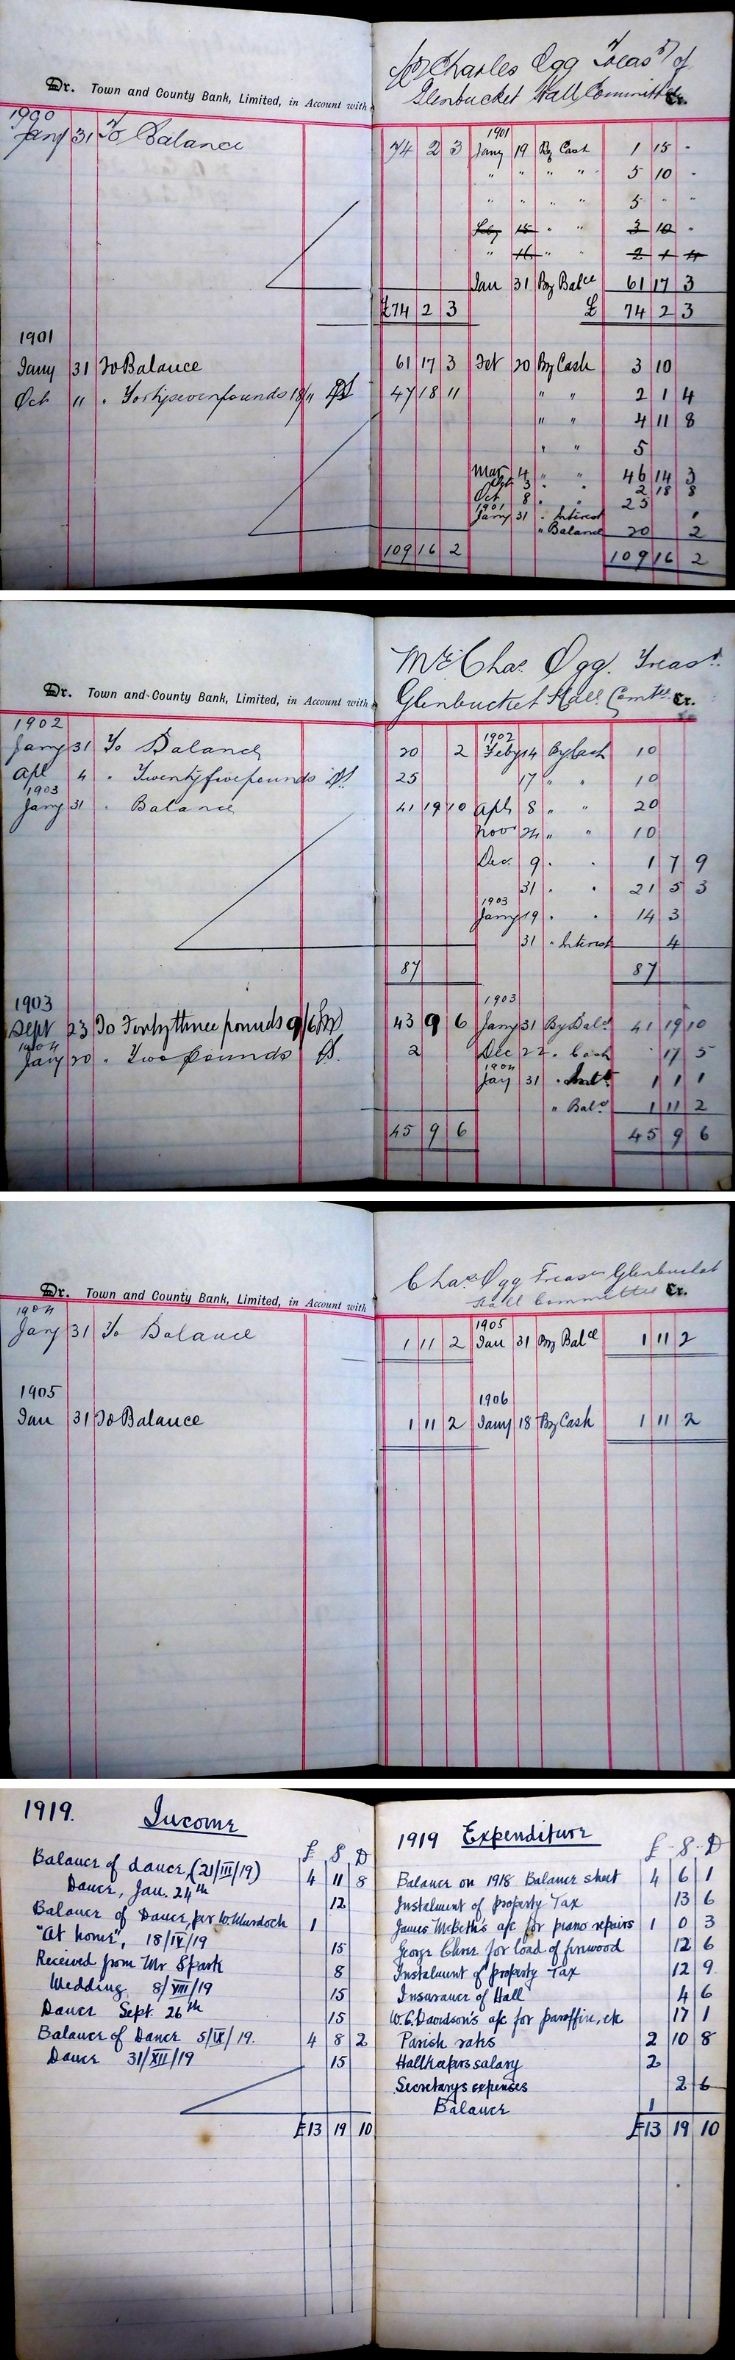 Dr. Town and County Bank, Limited, in Account with
Mr Charles Ogg Treasr of
Glenbucket Hall Committee Cr.
1900
Jany 31 To Balance 74 2 3
1901
Jany 19 By Cash 1 15 -
" " " " 5 10 -
" " " " 5 " "
Feby 15 " " 3 10 "
" 16 " " 2 1 4
Jan 31 By Balce 61 17 3
£74 2 3
£ 74 2 3
1901
Jany 31 To Balance 61 17 3
Oct 11 " Fortysevenpounds 18/11 47 18 11
Oct 20 By Cash 3 10
" " 2 1 4
" " 4 11 8
" " 5
Mar 4 " " 46 14 3
3 " " 2 18 8
Oct 8 " " 25
1901
Jany 31 " Interest 1
" Balance 20 2
109 16 2
109 16 2
Dr. Town and County Bank, Limited, in Account with
Mr Chas. Ogg. Treasr.
Glenbucket Hall Comtee Cr.
1902
Jany 31 To Balance 20 2
Apl 4 " Twentyfivepounds 25
1903
Jany 31 " Balance 41 19 10
1902
Feby 14 By Cash 10
17 " " 10
Apl 8 " " 20
Nov 24 " " 10
Dec. 9 " " 1 7 9
31 " " 21 5 3
1903
Jany 19 " " 14 3
31 " Interest 4
87
87
1903
Sept 23 To Fortythree pounds 9/6 43 9 6
1904
Jany 20 " Two pounds 2
1903
Jany 31 By Bale. 41 19 10
Dec 22 " Cash 17 5
1904
Jany 31 " Intt 1 1 1
" Bale. 1 11 2
45 9 6
45 9 6
Dr. Town and County Bank, Limited, in Account with
Chas Ogg Treasr Glenbucket
Hall Committee Cr.
1904
Jany 31 To Balance 1 11 2
1905
Jan 31 By Balce 1 11 2
1905
Jan 31 To Balance 1 11 2
1906
Jany 18 By Cash 1 11 2
1919. Income
£ S D
Balance of dance, (21/III/19) 4 11 8
Dance, Jan. 24th 12
Balance of Dance, per W. Murdoch 1
"At home", 18/IV/19 15
Received from Mr Spark 8
Wedding 8/VIII/19 15
Dance Sept. 26th 15
Balance of Dance 5/IX/19. 4 8 2
Dance 31/XII/19 15
£13 19 10
1919 Expenditure
£ S. D
Balance on 1918 Balance sheet 4 6 1
Instalment of property Tax 13 6
James McBeth's a/c for piano repairs 1 0 3
George for load of firewood 12 6
Instalment of property Tax 12 9
Insurance of Hall 4 6
W.C. Davidson's a/c for paraffin, etc 17 1
Parish rates 2 10 8
Hallkeepers salary 2
Secretarys expenses 2 6
Balance 1
£13 19 10